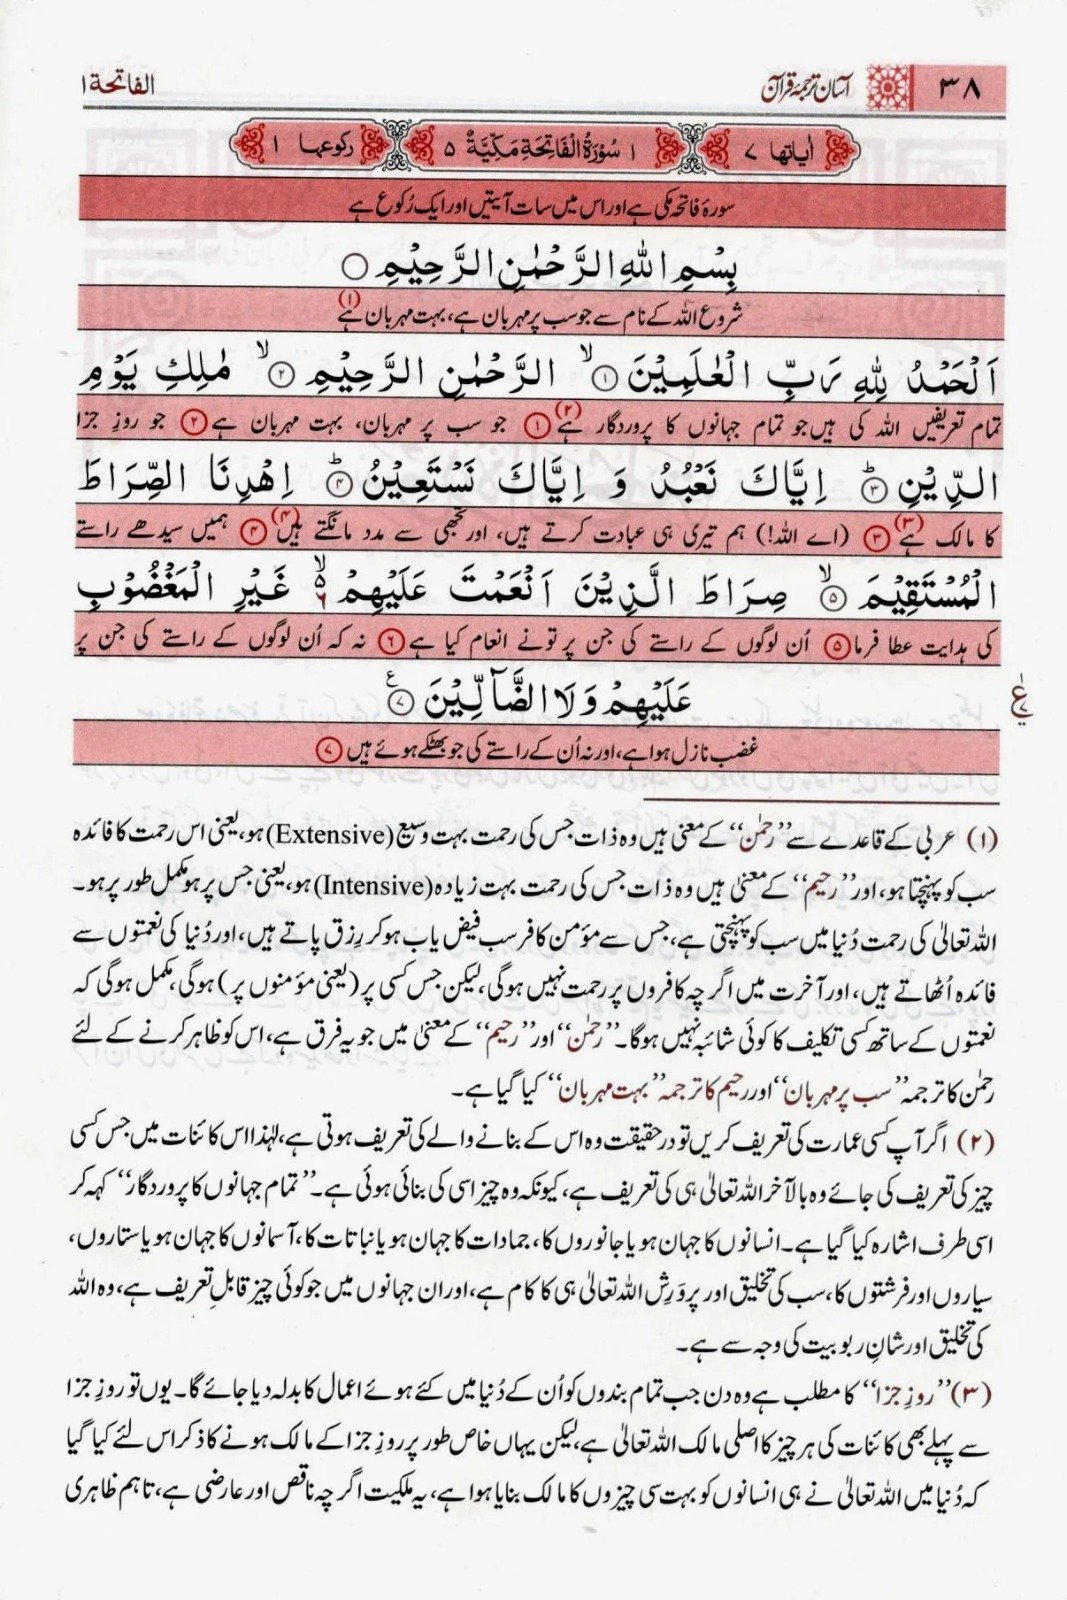 ۳۸ آسان ترجمۂ قرآن الفاتحۃ ۱
اٰیاتہا ۷ ۱ سُوْرَۃُ الْفَاتِحَۃِ مَکِّیَّۃٌ ۵ رکوعہا ۱
سورۂ فاتحہ مکی ہے اور اس میں سات آیتیں اور ایک رُکوع ہے
بِسْمِ اللّٰهِ الرَّحْمٰنِ الرَّحِیْمِ ○
شروع اللہ کے نام سے جو سب پر مہربان ہے، بہت مہربان ہے (۱)
اَلْحَمْدُ لِلّٰهِ رَبِّ الْعٰلَمِیْنَ ۙ﴿۱﴾ الرَّحْمٰنِ الرَّحِیْمِ ۙ﴿۲﴾ مٰلِكِ یَوْمِ
تمام تعریفیں اللہ کی ہیں جو تمام جہانوں کا پروردگار ہے (۲) ﴿۱﴾ جو سب پر مہربان، بہت مہربان ہے ﴿۲﴾ جو روزِ جزا
الدِّیْنِ ؕ﴿۳﴾ اِیَّاكَ نَعْبُدُ وَ اِیَّاكَ نَسْتَعِیْنُ ؕ﴿۴﴾ اِهْدِنَا الصِّرَاطَ
کا مالک ہے (۳) ﴿۳﴾ (اے اللہ!) ہم تیری ہی عبادت کرتے ہیں، اور تجھی سے مدد مانگتے ہیں (۴) ﴿۴﴾ ہمیں سیدھے راستے
الْمُسْتَقِیْمَ ۙ﴿۵﴾ صِرَاطَ الَّذِیْنَ اَنْعَمْتَ عَلَیْهِمْ ۙ۬ۥ۶ غَیْرِ الْمَغْضُوْبِ
کی ہدایت عطا فرما ﴿۵﴾ اُن لوگوں کے راستے کی جن پر تو نے انعام کیا ہے ﴿۶﴾ نہ کہ اُن لوگوں کے راستے کی جن پر
عَلَیْهِمْ وَ لَا الضَّآلِّیْنَ ﴿۷﴾ ع
غضب نازل ہوا ہے، اور نہ اُن کے راستے کی جو بھٹکے ہوئے ہیں ﴿۷﴾
(۱) عربی کے قاعدے سے ”رحمٰن“ کے معنی ہیں وہ ذات جس کی رحمت بہت وسیع (Extensive) ہو، یعنی اس رحمت کا فائدہ
سب کو پہنچتا ہو، اور ”رحیم“ کے معنیٰ ہیں وہ ذات جس کی رحمت بہت زیادہ (Intensive) ہو، یعنی جس پر ہو مکمل طور پر ہو۔
اللہ تعالیٰ کی رحمت دُنیا میں سب کو پہنچتی ہے، جس سے مؤمن کافر سب فیض یاب ہو کر رِزق پاتے ہیں، اور دُنیا کی نعمتوں سے
فائدہ اُٹھاتے ہیں، اور آخرت میں اگر چہ کافروں پر رحمت نہیں ہوگی، لیکن جس کسی پر (یعنی مؤمنوں پر) ہوگی، مکمل ہوگی کہ
نعمتوں کے ساتھ کسی تکلیف کا کوئی شائبہ نہیں ہوگا۔ ”رحمٰن“ اور ”رحیم“ کے معنیٰ میں جو یہ فرق ہے، اس کو ظاہر کرنے کے لئے
رحمٰن کا ترجمہ ”سب پر مہربان“ اور رحیم کا ترجمہ ”بہت مہربان“ کیا گیا ہے۔
(۲) اگر آپ کسی عمارت کی تعریف کریں تو درحقیقت وہ اس کے بنانے والے کی تعریف ہوتی ہے، لہٰذا اس کائنات میں جس کسی
چیز کی تعریف کی جائے وہ بالآخر اللہ تعالیٰ ہی کی تعریف ہے، کیونکہ وہ چیز اسی کی بنائی ہوئی ہے۔ ”تمام جہانوں کا پروردگار“ کہہ کر
اسی طرف اشارہ کیا گیا ہے۔ انسانوں کا جہان ہو یا جانوروں کا، جمادات کا جہان ہو یا نباتات کا، آسمانوں کا جہان ہو یا ستاروں،
سیاروں اور فرشتوں کا، سب کی تخلیق اور پرورِش اللہ تعالیٰ ہی کا کام ہے، اور ان جہانوں میں جو کوئی چیز قابلِ تعریف ہے، وہ اللہ
کی تخلیق اور شانِ ربوبیت کی وجہ سے ہے۔
(۳) ”روزِ جزا“ کا مطلب ہے وہ دن جب تمام بندوں کو اُن کے دُنیا میں کئے ہوئے اعمال کا بدلہ دیا جائے گا۔ یوں تو روزِ جزا
سے پہلے بھی کائنات کی ہر چیز کا اصلی مالک اللہ تعالیٰ ہے، لیکن یہاں خاص طور پر روزِ جزا کے مالک ہونے کا ذکر اس لئے کیا گیا
کہ دُنیا میں اللہ تعالیٰ نے ہی انسانوں کو بہت سی چیزوں کا مالک بنایا ہوا ہے، یہ ملکیت اگر چہ ناقص اور عارضی ہے، تاہم ظاہری